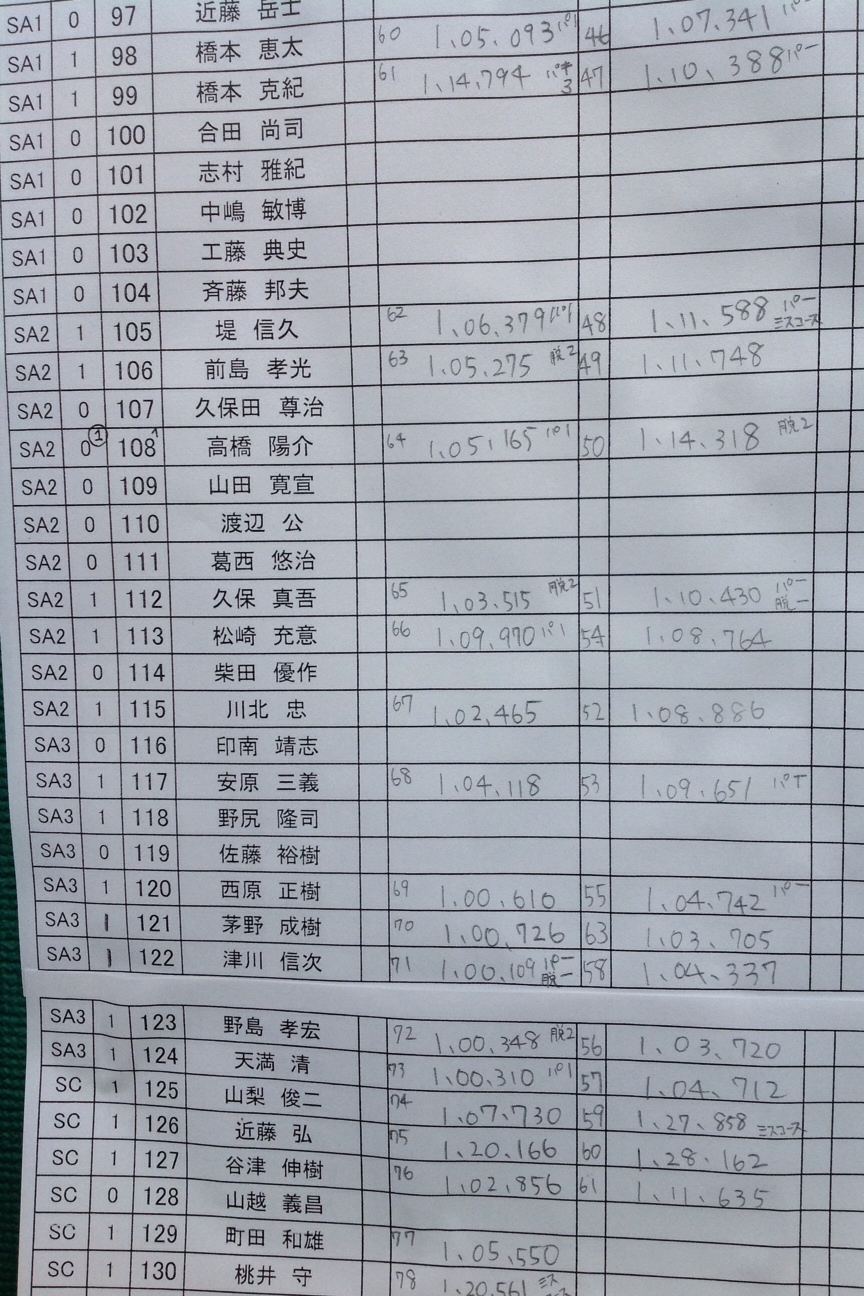 SA1 0 97 近藤 岳士
SA1 1 98 橋本 恵太 60 1.05.093 パ1 46 1.07.341 パー
SA1 1 99 橋本 克紀 61 1.14.794 47 1.10.388 パー
SA1 0 100 合田 尚司
SA1 0 101 志村 雅紀
SA1 0 102 中嶋 敏博
SA1 0 103 工藤 典史
SA1 0 104 斉藤 邦夫
SA2 1 105 堤 信久 62 1.06.379 パ1 48 1.11.588 パー ミスコース
SA2 1 106 前島 孝光 63 1.05.275 脱2 49 1.11.748
SA2 0 107 久保田 尊治
SA2 0 ① 108 高橋 陽介 64 1.05.165 パ1 50 1.14.318 脱2
SA2 0 109 山田 寛宣
SA2 0 110 渡辺 公
SA2 0 111 葛西 悠治
SA2 1 112 久保 真吾 65 1.03.515 脱2 51 1.10.430 パー 脱一
SA2 1 113 松崎 充意 66 1.09.970 パ1 54 1.08.764
SA2 0 114 柴田 優作
SA2 1 115 川北 忠 67 1.02.465 52 1.08.886
SA3 0 116 印南 靖志
SA3 1 117 安原 三義 68 1.04.118 53 1.09.651
SA3 1 118 野尻 隆司
SA3 0 119 佐藤 裕樹
SA3 1 120 西原 正樹 69 1.00.610 55 1.04.742 パー
SA3 1 121 茅野 成樹 70 1.00.726 63 1.03.705
SA3 1 122 津川 信次 71 1.00.109 パー 脱一 58 1.04.337
SA3 1 123 野島 孝宏 72 1.00.348 脱2 56 1.03.720
SA3 1 124 天満 清 73 1.00.310 パ1 57 1.04.712
SC 1 125 山梨 俊二 74 1.07.730 59 1.27.858 ミスコース
SC 1 126 近藤 弘 75 1.20.166 60 1.28.162
SC 1 127 谷津 伸樹 76 1.02.856 61 1.11.635
SC 0 128 山越 義昌
SC 1 129 町田 和雄 77 1.05.550
SC 1 130 桃井 守 78 1.20.561 ミス